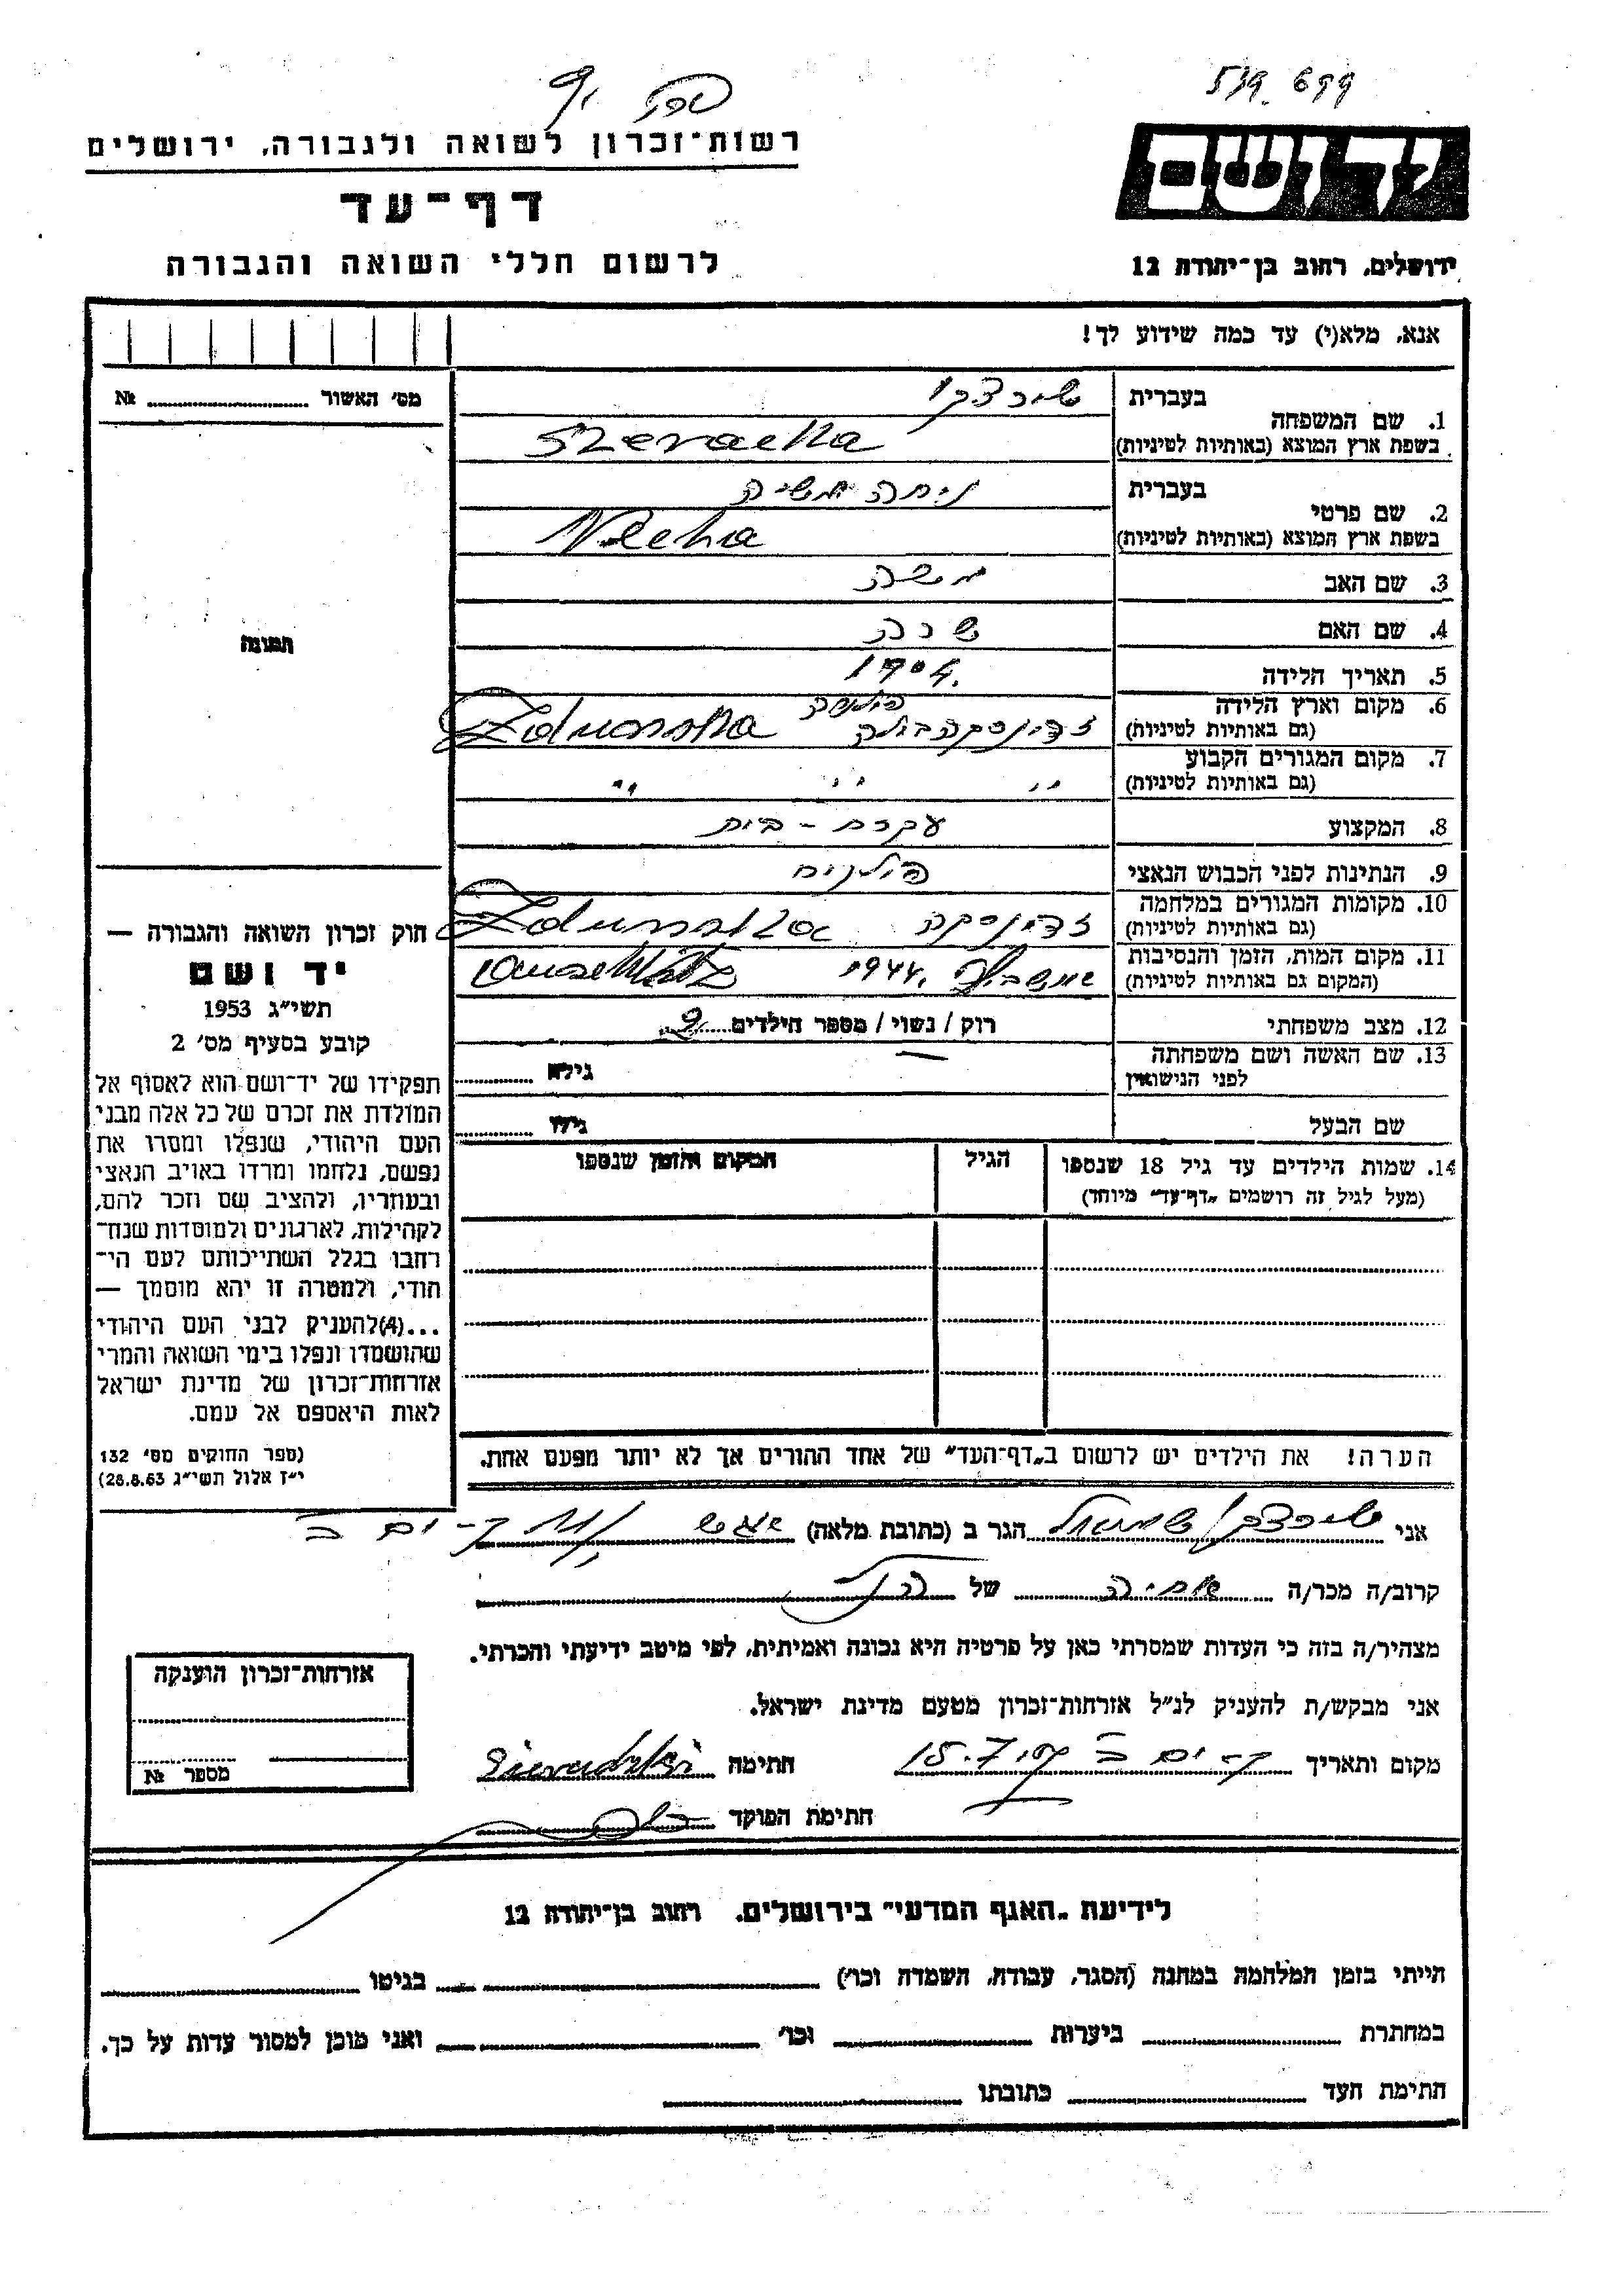 519. 699
יד ושם
רשות־זכרון לשואה ולגבורה, ירושלים
דף־עד
ירושלים, רחוב בן־יהודה 12
לרשום חללי השואה והגבורה
אנא, מלא(י) עד כמה שידוע לך!
מס׳ האשור № 
1. שם המשפחה בעברית שירצקי
בשפת ארץ המוצא (באותיות לטיניות) Szeracka
2. שם פרטי בעברית
בשפת ארץ המוצא (באותיות לטיניות) Necha
3. שם האב משה
4. שם האם שרה
5. תאריך הלידה 1904.
6. מקום וארץ הלידה פולניה
(גם באותיות לטיניות) זדונסקה וולה Zdunska
7. מקום המגורים הקבוע
(גם באותיות לטיניות) " " "
8. המקצוע עקרת - בית
9. הנתינות לפני הכבוש הנאצי פולנית
10. מקומות המגורים במלחמה
(גם באותיות לטיניות) זדונסקה Zdunska
11. מקום המות, הזמן והנסיבות
(המקום גם באותיות לטיניות) אושביץ 1944.
12. מצב משפחתי רוק / נשוי / מספר הילדים 2
13. שם האשה ושם משפחתה
לפני הנישואין — גילה
שם הבעל גילו
14. שמות הילדים עד גיל 18 שנספו הגיל המקום והזמן שנספו
(מעל לגיל זה רושמים „דף־עד״ מיוחד)
הערה! את הילדים יש לרשום ב„דף־העד״ של אחד ההורים אך לא יותר מפעם אחת.
תמונה
חוק זכרון השואה והגבורה —
יד ושם
תשי״ג 1953
קובע בסעיף מס׳ 2
תפקידו של יד־ושם הוא לאסוף אל
המולדת את זכרם של כל אלה מבני
העם היהודי, שנפלו ומסרו את
נפשם, נלחמו ומרדו באויב הנאצי
ובעוזריו, ולהציב שם וזכר להם,
לקהילות, לארגונים ולמוסדות שנח־
רבו בגלל השתייכותם לעם הי־
הודי, ולמטרה זו יהא מוסמך —
...(4)להעניק לבני העם היהודי
שהושמדו ונפלו בימי השואה והמרי
אזרחות־זכרון של מדינת ישראל
לאות היאספם אל עמם.
(ספר החוקים מס׳ 132
י״ז אלול תשי״ג 28.8.53)
אני שירצקי שמואל הגר ב (כתובת מלאה) ק-ים ב
קרוב/ה מכר/ה של הנ״ל
מצהיר/ה בזה כי העדות שמסרתי כאן על פרטיה היא נכונה ואמיתית, לפי מיטב ידיעתי והכרתי.
אני מבקש/ת להעניק לנ״ל אזרחות־זכרון מטעם מדינת ישראל.
מקום ותאריך ק-ים ב 15.7. חתימה Sieradzki
חתימת הפוקד
אזרחות־זכרון הוענקה
מספר №
לידיעת „האגף המדעי״ בירושלים, רחוב בן־יהודה 12
הייתי בזמן המלחמה במחנה (הסגר, עבודה, השמדה וכו׳) בגיטו
במחתרת ביערות וכו׳ ואני מוכן למסור עדות על כך.
חתימת העד כתובתו